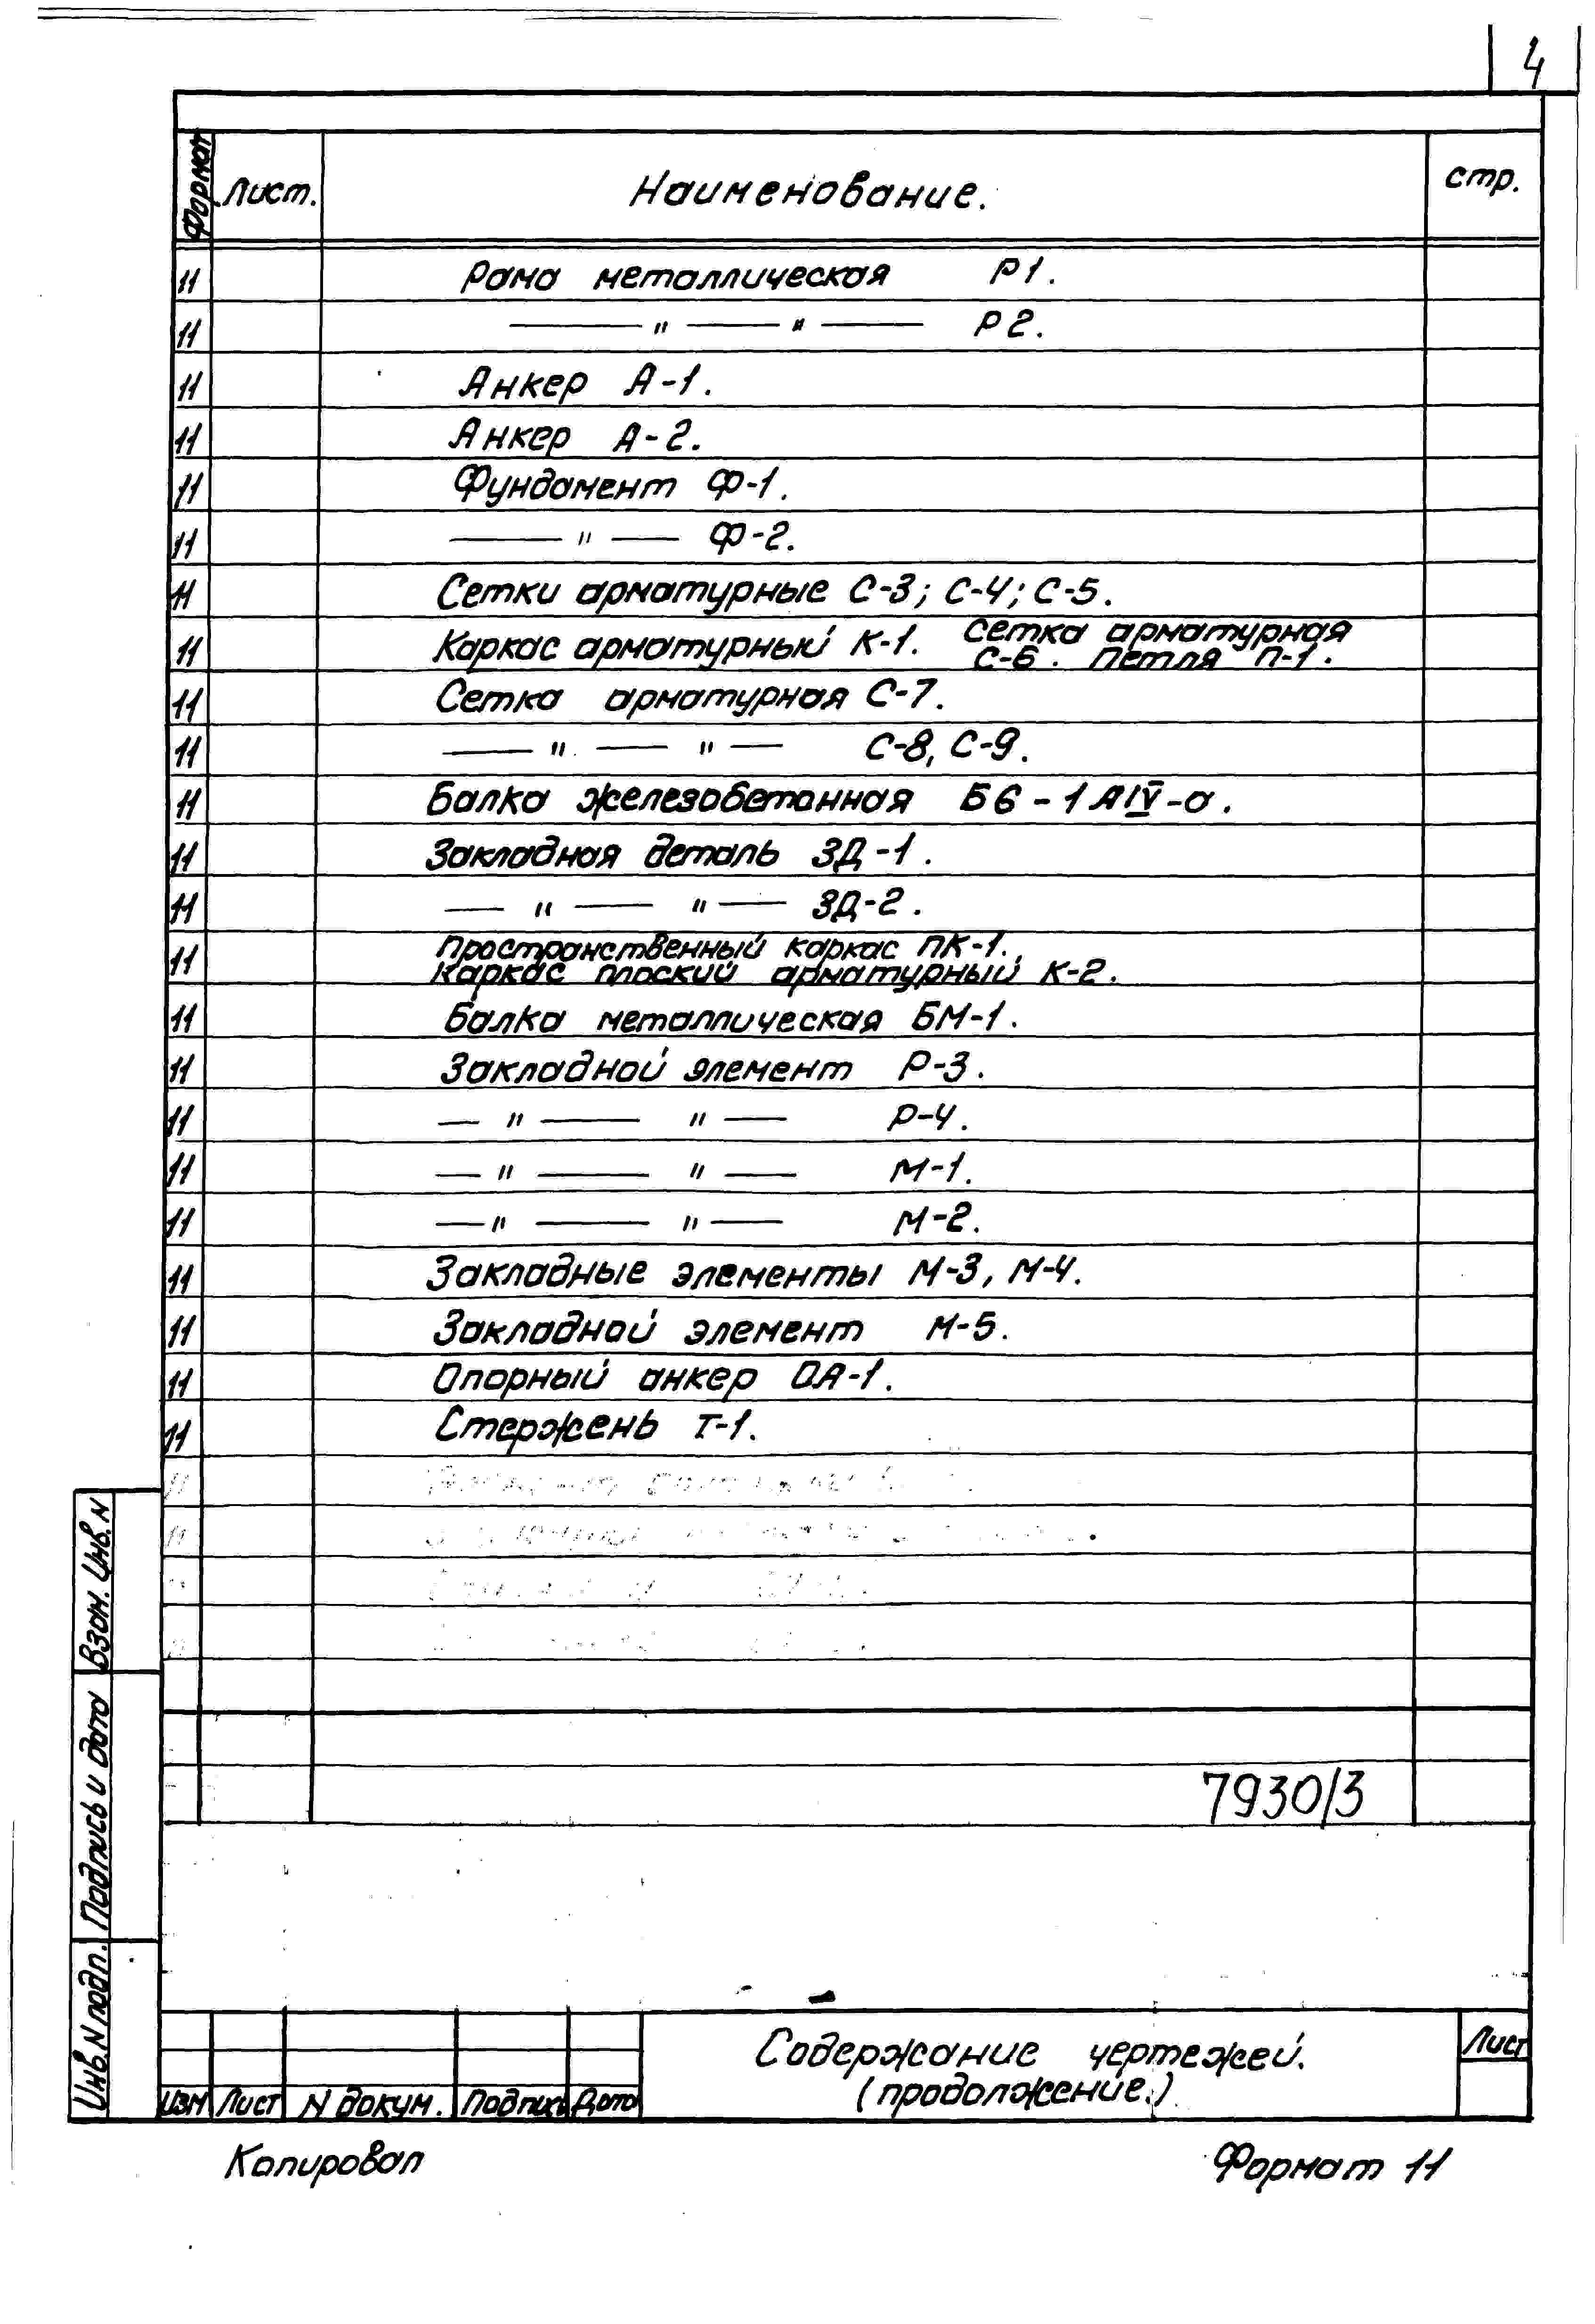 4
Формат Лист. Наименование. стр.
11 Рама металлическая Р1.
11 —— " —— " —— Р2.
11 Анкер А-1.
11 Анкер А-2.
11 Фундамент Ф-1.
11 —— " —— Ф-2.
11 Сетки арматурные С-3; С-4; С-5.
11 Каркас арматурный К-1. Сетка арматурная
С-6. Петля П-1.
11 Сетка арматурная С-7.
11 —— " —— " —— С-8, С-9.
11 Балка железобетонная Б6-1АIV-а.
11 Закладная деталь ЗД-1.
11 —— " —— " —— ЗД-2.
11 Пространственный каркас ПК-1.,
Каркас плоский арматурный К-2.
11 Балка металлическая БМ-1.
11 Закладной элемент Р-3.
11 —— " —— " —— Р-4.
11 —— " —— " —— М-1.
11 —— " —— " —— М-2.
11 Закладные элементы М-3, М-4.
11 Закладной элемент М-5.
11 Опорный анкер ОА-1.
11 Стержень Т-1.
7930/3
Взам. Инв. N
Подпись и дата
Инв. N подп.
Содержание чертежей.
(продолжение.)
Лист
Изм Лист N докум. Подпись Дата
Копировал Формат 11